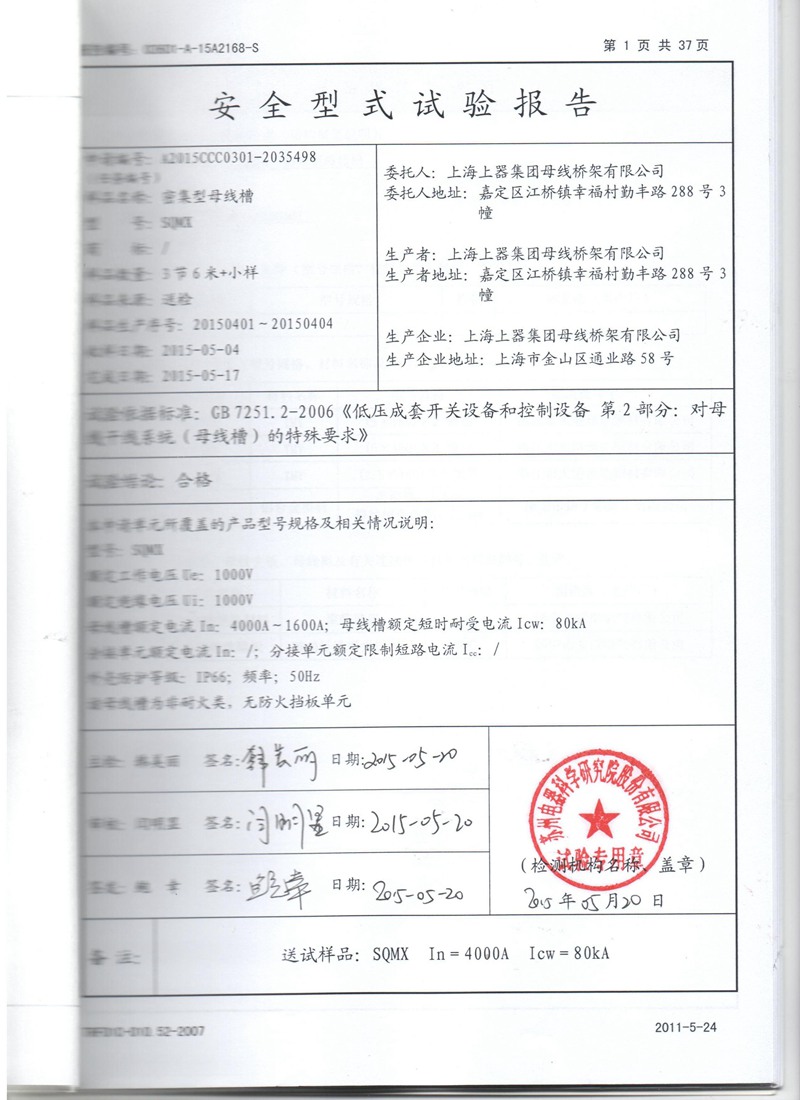 -A-15A2168-S
第 1 页 共 37 页
安全型式试验报告
申请编号：A2015CCC0301-2035498
（任务编号）
样品名称：密集型母线槽
型 号：SQMX
商 标：/
样品数量：3 节 6 米+小样
样品来源：送检
样品生产序号：20150401～20150404
收样日期：2015-05-04
完成日期：2015-05-17
委托人：上海上器集团母线桥架有限公司
委托人地址：嘉定区江桥镇幸福村勤丰路 288 号 3
幢
生产者：上海上器集团母线桥架有限公司
生产者地址：嘉定区江桥镇幸福村勤丰路 288 号 3
幢
生产企业：上海上器集团母线桥架有限公司
生产企业地址：上海市金山区通业路 58 号
试验依据标准：GB 7251.2-2006《低压成套开关设备和控制设备 第 2 部分：对母
线干线系统（母线槽）的特殊要求》
试验结论：合格
本申请单元所覆盖的产品型号规格及相关情况说明：
型号：SQMX
额定工作电压 Ue：1000V
额定绝缘电压 Ui：1000V
母线槽额定电流 In：4000A～1600A；母线槽额定短时耐受电流 Icw：80kA
分接单元额定电流 In：/；分接单元额定限制短路电流 Icc：/
外壳防护等级：IP66；频率；50Hz
该母线槽为非耐火类，无防火挡板单元
主检：韩美丽 签名：韩美丽 日期：2015-05-20
审核：闫明星 签名：闫明星 日期：2015-05-20
签发：鲍 章 签名：鲍章 日期：2015-05-20
苏州电器科学研究院股份有限公司
试验专用章
（检测机构名称、盖章）
2015 年 05 月 20 日
备 注：
送试样品：SQMX In＝4000A Icw＝80kA
52-2007
2011-5-24